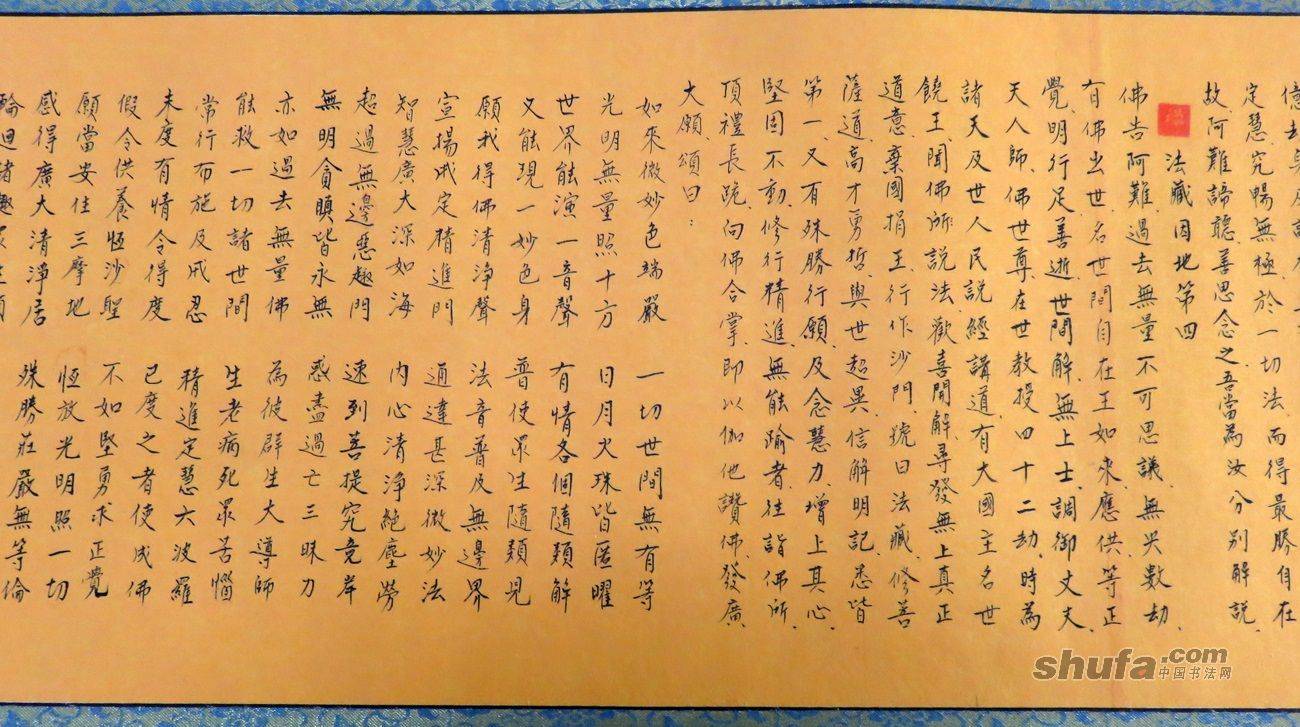 定慧究暢無極於一切法而得最勝自在
故阿難諦聽善思念之吾當為汝分別解說
法藏因地第四
佛告阿難過去無量不可思議無央數劫
有佛出世名世間自在王如來應供等正
覺明行足善逝世間解無上士調御丈夫
天人師佛世尊在世教授四十二劫時為
諸天及世人民說經講道有大國主名世
饒王聞佛所說法歡喜開解尋發無上真正
道意棄國捐王行作沙門號曰法藏修善
薩道高才勇哲與世超異信解明記悉皆
第一又有殊勝行願及念慧力增上其心
堅固不動修行精進無能踰者往詣佛所
頂禮長跪向佛合掌即以伽他讚佛發廣
大願頌曰：
如來微妙色端嚴 一切世間無有等
光明無量照十方 日月火珠皆匿曜
世界能演一音聲 有情各個隨類解
又能現一妙色身 普使眾生隨類見
願我得佛清淨聲 法音普及無邊界
宣揚戒定精進門 通達甚深微妙法
智慧廣大深如海 內心清淨絕塵勞
超過無邊惡趣門 速到菩提究竟岸
無明貪瞋皆永無 惑盡過亡三昧力
亦如過去無量佛 為彼群生大導師
能救一切諸世間 生老病死眾苦惱
常行布施及戒忍 精進定慧六波羅
未度有情令得度 已度之者使成佛
假令供養恆沙聖 不如堅勇求正覺
願當安住三摩地 恆放光明照一切
感得廣大清淨居 殊勝莊嚴無等倫
輪迴諸趣眾生
shufa.com
中国书法网